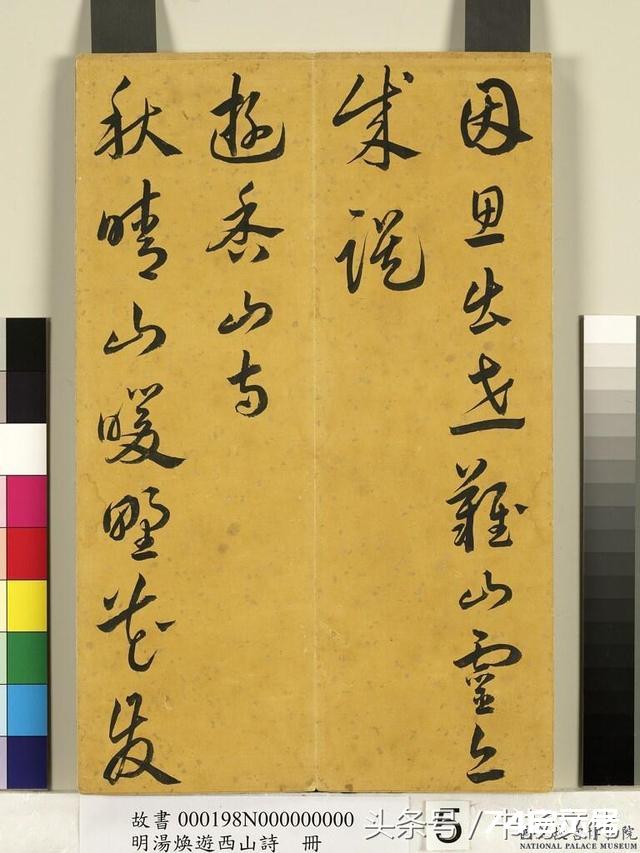 因思出世難山靈与
成説
遊香山寺
秋晴山暖野花發
故書 000198N000000000
明湯煥遊西山詩 冊
5
头条号
NATIONAL PALACE MUSEUM